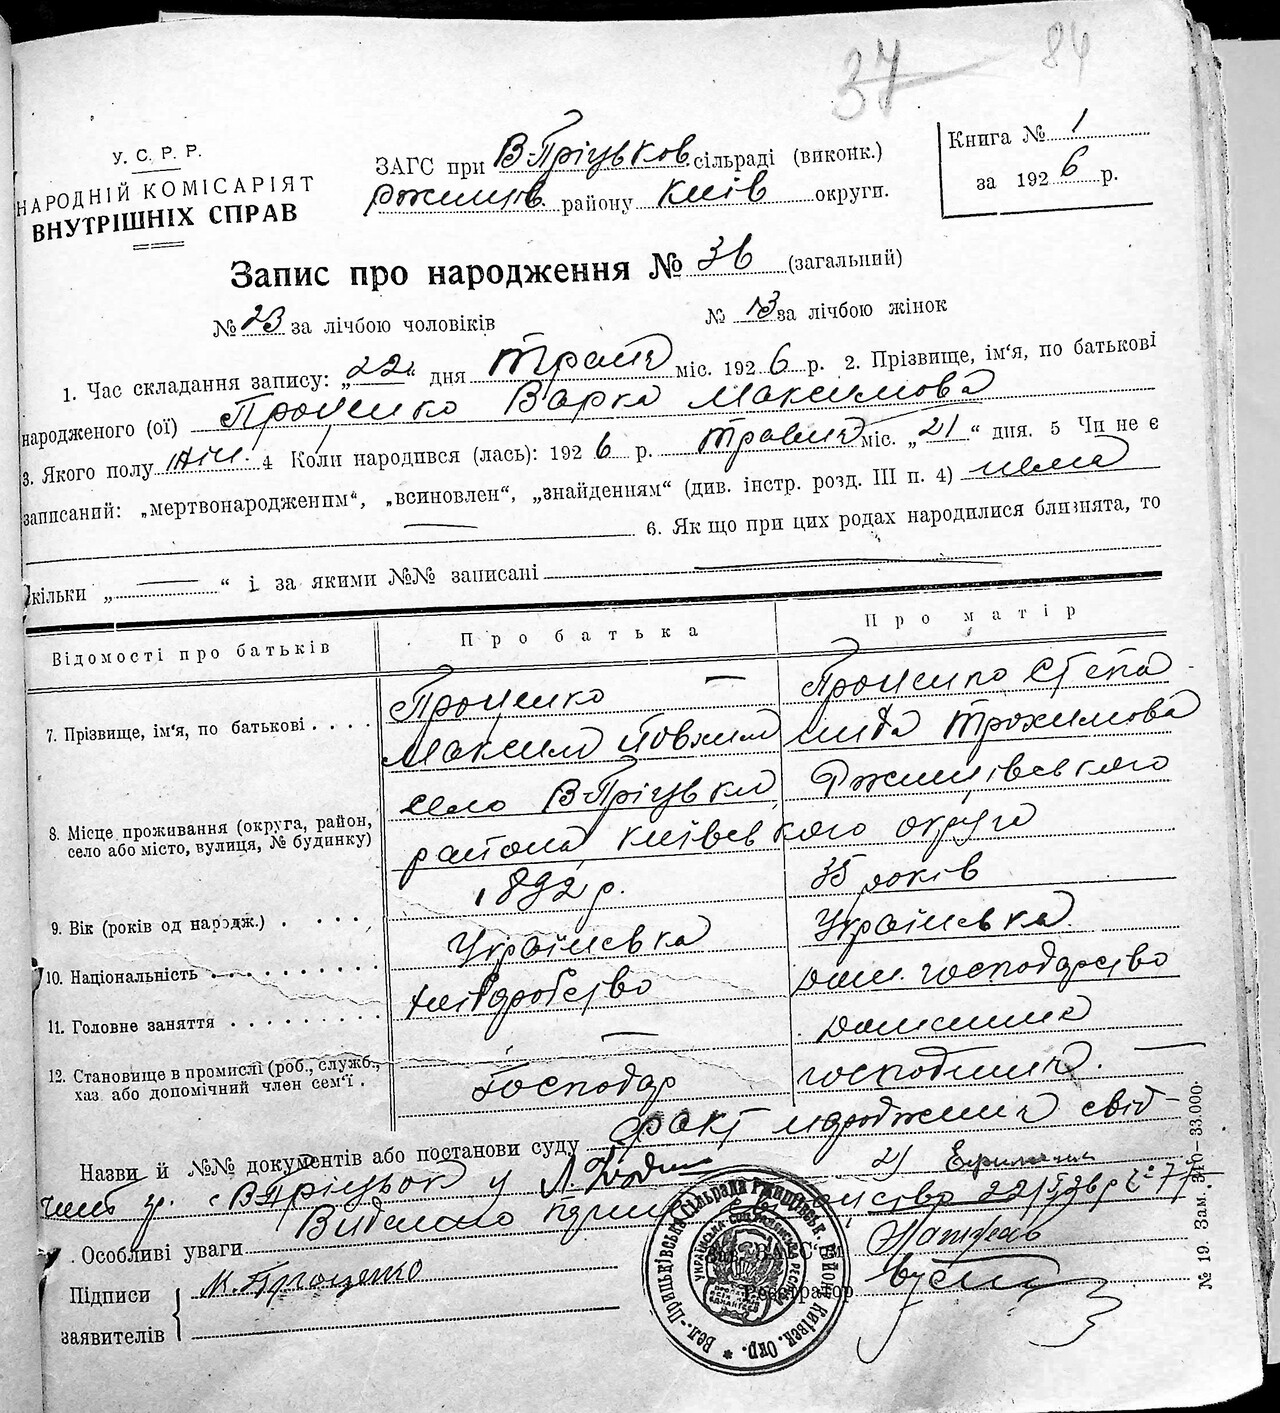 37 84
У. С. Р. Р.
НАРОДНІЙ КОМІСАРІЯТ
ВНУТРІШНІХ СПРАВ
ЗАГС при В-Пріцьков сільраді (виконк.)
Ржищів. району Київ округи.
Книга № 1
за 1926 р.
Запис про народження № 36 (загальний)
№ 23 за лічбою чоловіків № 13 за лічбою жінок
1. Час складання запису: „22“ дня Травня міс. 1926 р. 2. Прізвище, ім‘я, по батькові
народженого (ої) Проценко Варка Максимова
3. Якого полу жін. 4 Коли народився (лась): 1926 р. травня міс. „21“ дня. 5 Чи не є
записаний: „мертвонародженим“, „всиновлен“, „знайденням“ (див. інстр. розд. III п. 4) нема
6. Як що при цих родах народилися близнята, то
скільки „ “ і за якими №№ записані
Відомості про батьків Про батька Про матір
7. Прізвище, ім‘я, по батькові . . . . Проценко Проценко Степа
Максим нида Трохимова
8. Місце проживання (округа, район, село або місто, вулиця, № будинку) село В-Пріцьки Ржищівського
района Київського округа
9. Вік (років од нардж.) . . . . . 1892 р. 35 років
10. Національність . . . . . . . . . . Українська Українська
11. Головне заняття . . . . . . . . . хліборобство дом. господарство
12. Становище в промислі (роб., служб., хаз або допомічний член сем‘ї . Господар домашня
господиня.
Назви й №№ документів або постанови суду факт народження свід
Видано
. Особливі уваги
Підписи
заявителів
М. Проценко
Зав. ЗАГС‘ом
Реєстратор
Вел.-Прицьківська Сільрада Ржищівськ. Район. Київск. Окр. *
УКРАЇНСЬКА СОЦ. РАДЯНСЬКА РЕСПУБ.
№ 19. Зам. 310—33.000.